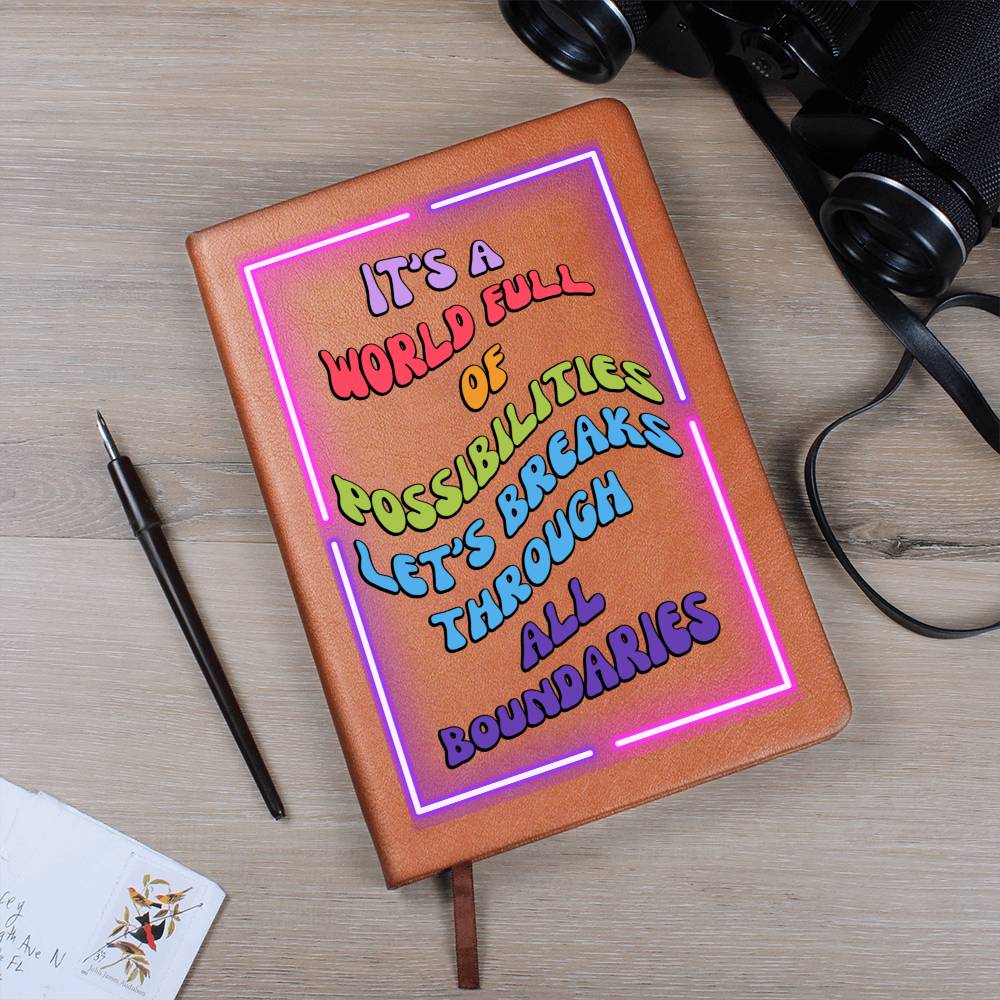 IT'S A
WORLD FULL
OF
POSSIBILITIES
LET'S BREAKS
THROUGH
ALL
BOUNDARIES
ey
9th Ave N
FL
37
John James Audubon